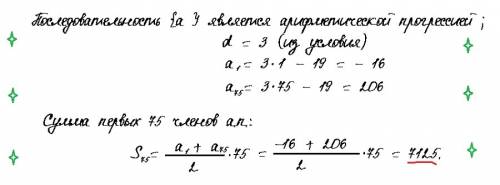 Последовательность {a } является арифметической прогрессией;
d = 3 (из условия)
a₁ = 3·1 - 19 = - 16
a₇₅ = 3·75 - 19 = 206
Сумма первых 75 членов а.п.:
S₇₅ = (a₁ + a₇₅)/2 · 75 = (-16 + 206)/2 · 75 = 7125.